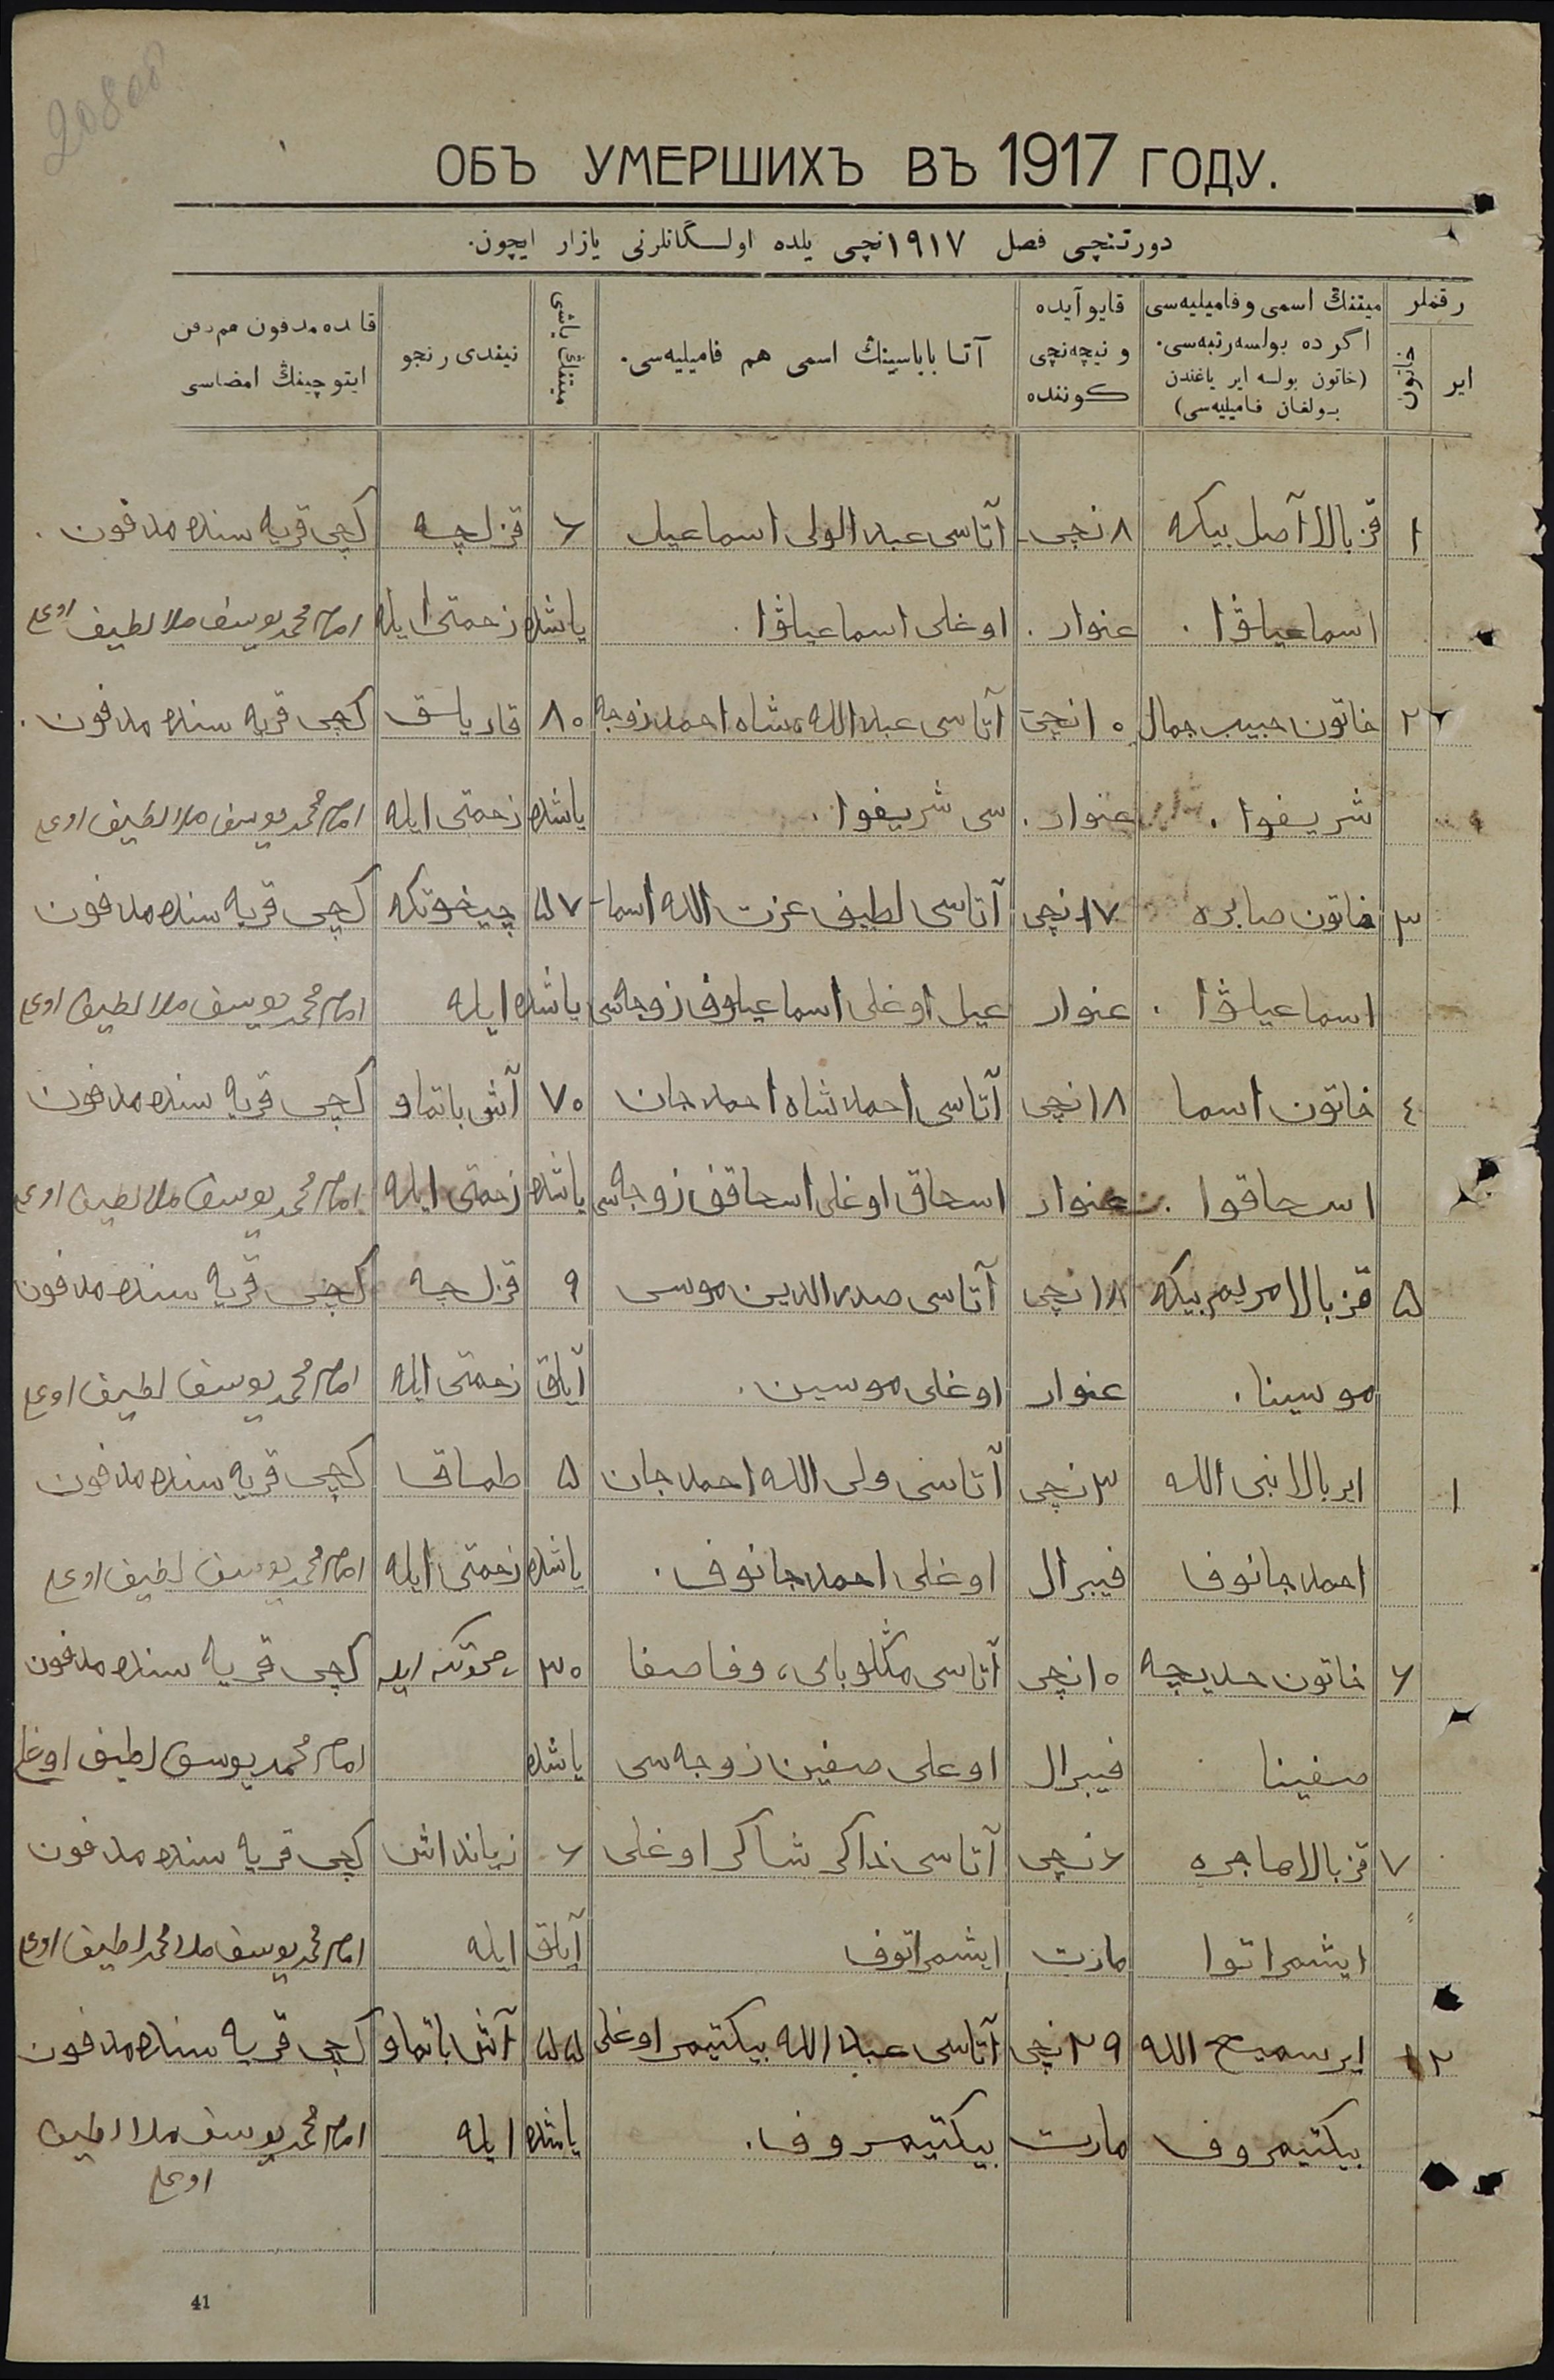 20808
ОБЪ УМЕРШИХЪ ВЪ 1917 ГОДУ.
دورتنچی فصل ١٩١٧نچی یلده اولـگانلرنی یازار ایچون.
رقملر میتنڭ اسمی وفامیلیه‌سی قایو آیده میتنڭ یاشی قایده مدفون هم دفن
ایر خاتون اگرده بولسه رتبه‌سی. ونیچه‌نچی آتا باباسینڭ اسمی هم فامیلیه‌سی. نیندی رنجو
(خاتون بولسه ایر یاغندن کوننده ایتوچینڭ امضاسی
بولغان فامیلیه‌سی)
١ قز بالا آصل بیکه ٨ نچی آتاسی عبدالولی اسماعیل ٦ قزلچه کچی قریه سنده مدفون.
اسماعیلوﭬا. عنوار. اوغلی اسماعیلوﭬا. یاشده زحمتی ایله امام محمد یوسف ملا لطیف اوغلی
٢ خاتون حبیب جمال ١٠نچی آتاسی عبدالله شاه احمد زوجه ٨٠ قارتلق کچی قریه سنده مدفون.
شریفوا. عنوار. سی شریفوا. یاشده زحمتی ایله امام محمد یوسف ملا لطیف اوغلی
٣ خاتون صابره ١٧نچی آتاسی لطیف عزت الله اسما- ٥٧ چیخوتکه کچی قریه سنده مدفون
اسماعیلوﭬا. عنوار عیل اوغلی اسماعیلوف زوجه‌سی یاشده ایله امام محمد یوسف ملا لطیف اوغلی
٤ خاتون اسما ١٨نچی آتاسی احمدشاه احمدجان ٧٠ آش باتماو کچی قریه سنده مدفون
اسحاقوا. عنوار اسحاق اوغلی اسحاقف زوجه‌سی یاشده زحمتی ایله امام محمد یوسف ملا لطیف اوغلی
٥ قز بالا مریم بیکه ١٨نچی آتاسی صدرالدین موسی ٩ قزلچه کچی قریه سنده مدفون
موسینا. عنوار اوغلی موسین. آیلق زحمتی ایله امام محمد یوسف لطیف اوغلی
١ ایر بالا نبی الله ٣نچی آتاسی ولی الله احمدجان ٥ طماق کچی قریه سنده مدفون
احمدجانوفا فیبرال اوغلی احمدجانوف. یاشده زحمتی ایله امام محمد یوسف لطیف اوغلی
٦ خاتون خدیجه ١٠نچی آتاسی منگلوبای، وفا صفا ٣٠ چخوتکه ایله کچی قریه سنده مدفون
صفینا فیبرال اوغلی صفین زوجه‌سی یاشده امام محمد یوسف لطیف اوغلی
٧ قز بالا هاجره ٦نچی آتاسی ذاکر شاکر اوغلی ٦ زیانداش کچی قریه سنده مدفون
ایشمراتوا مارت ایشمراتوف آیلق ایله امام محمد یوسف ملا محمد لطیف اوغلی
٢ ایر سمیح الله ٢٩نچی آتاسی عبدالله بیکتیمر اوغلی ٥٥ آش باتماو کچی قریه سنده مدفون
بیکتیمروف مارت بیکتیمروف. یاشده ایله امام محمد یوسف ملا لطیف
اوغلی
41